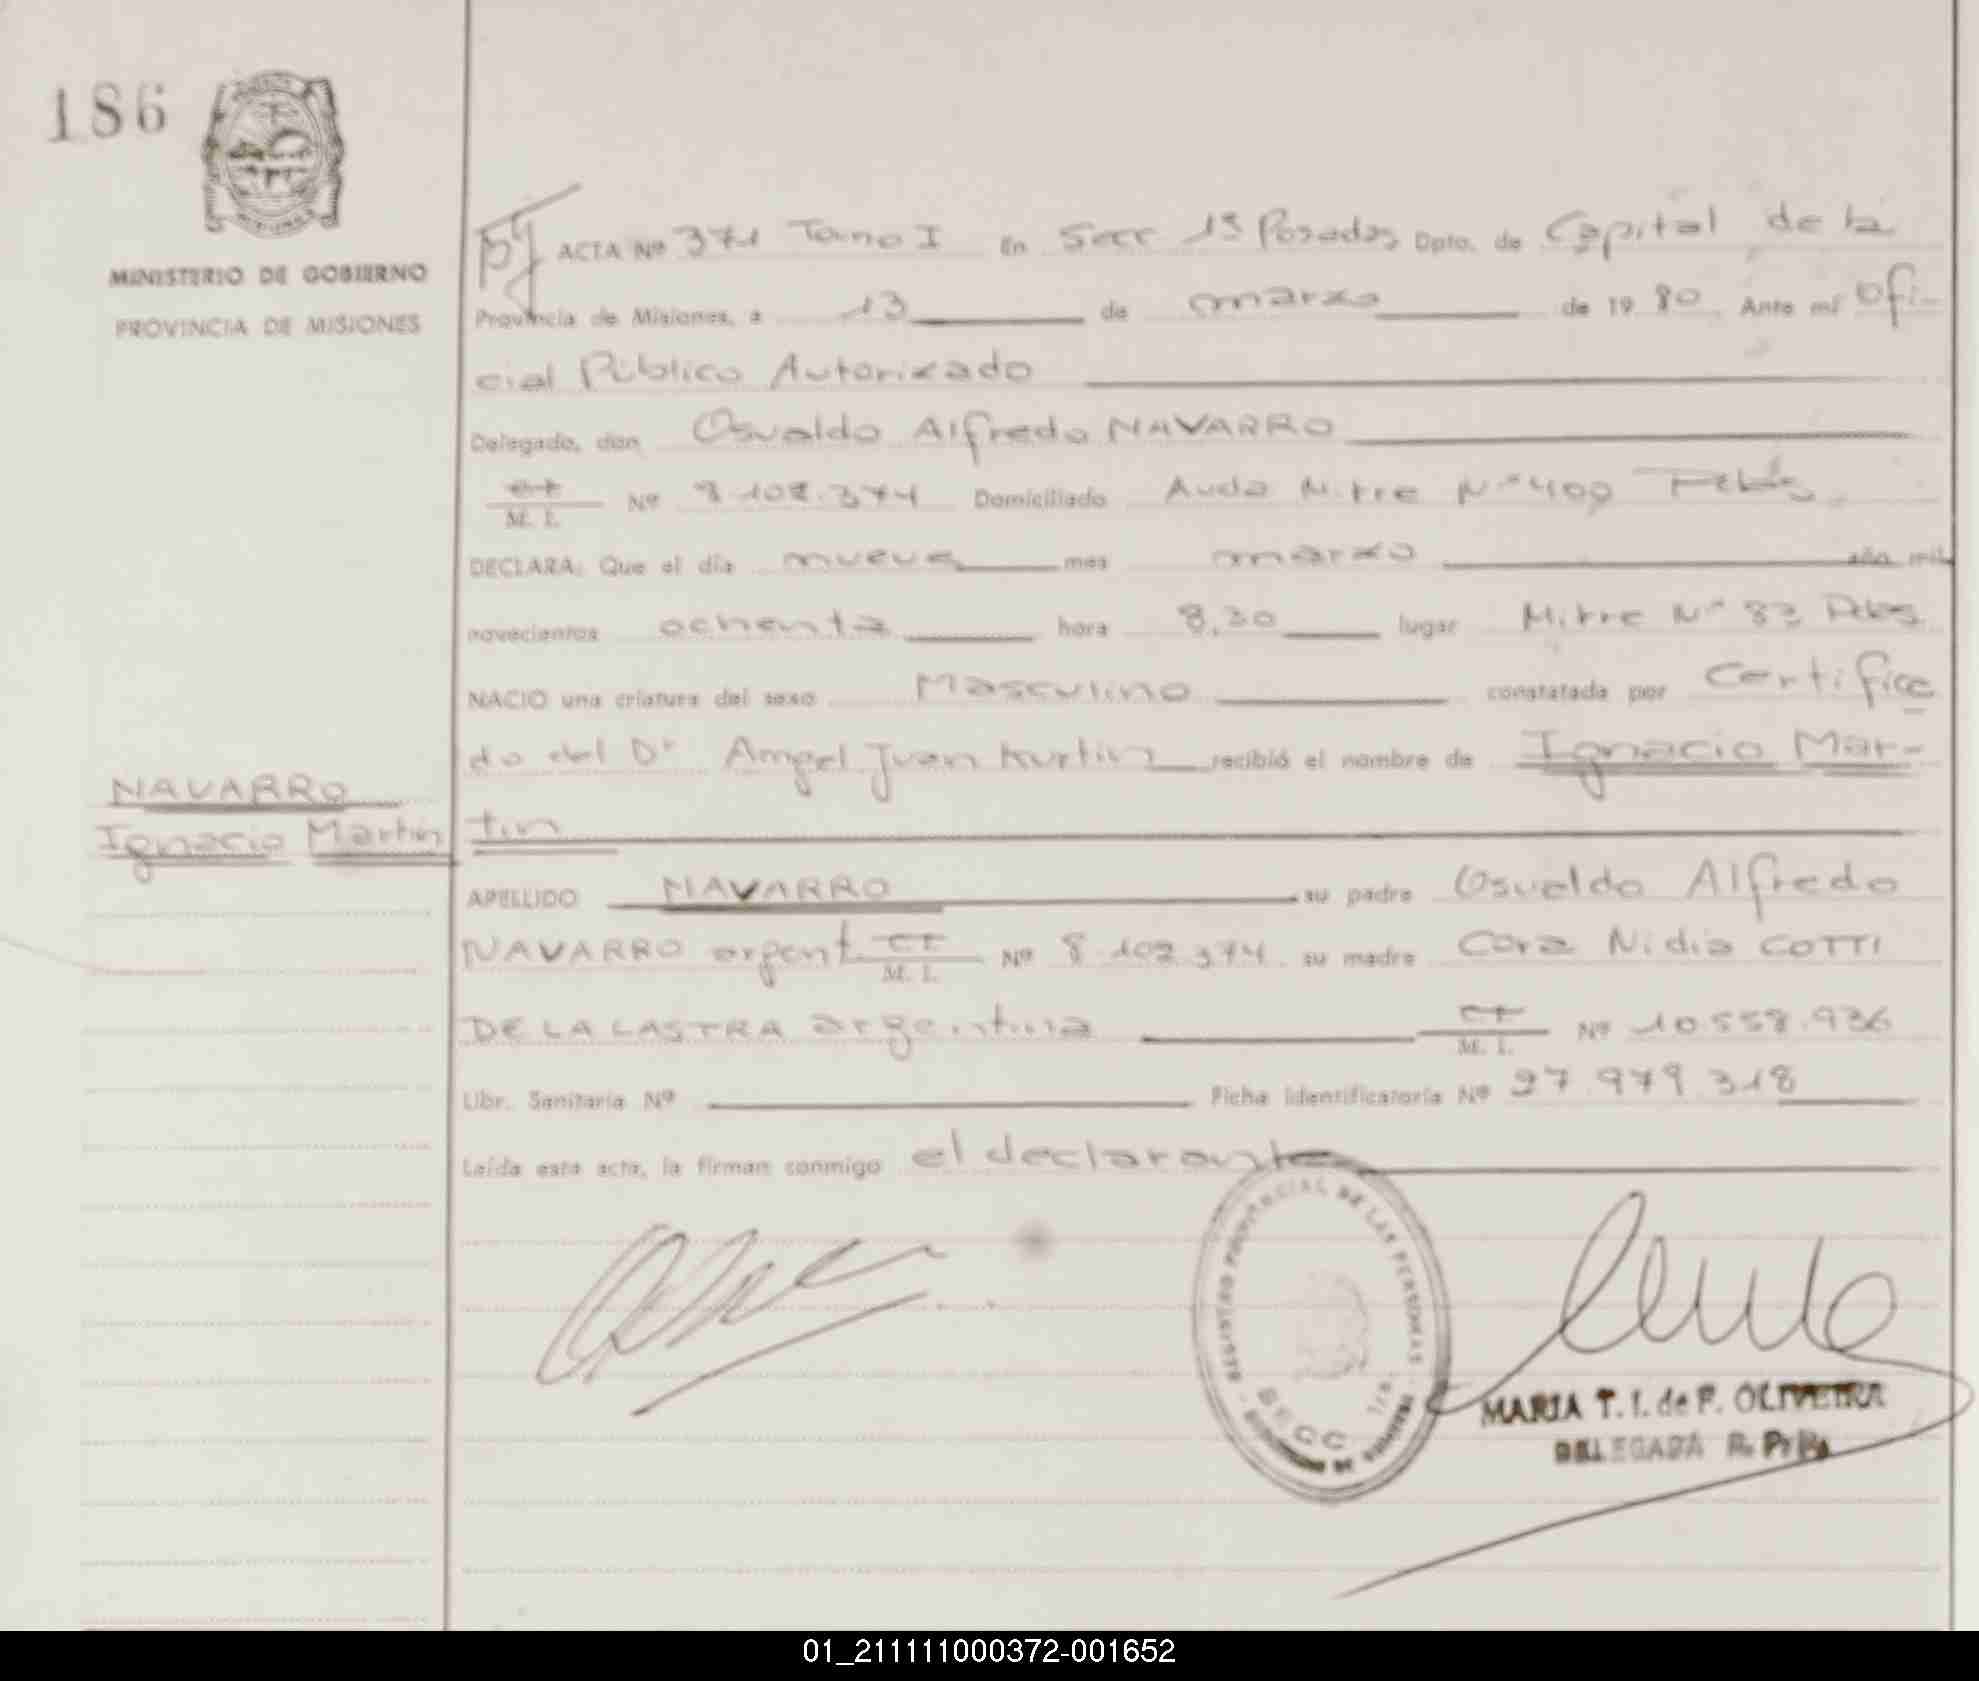 186
MINISTERIO DE GOBIERNO
PROVINCIA DE MISIONES
ACTA Nº 371 Tomo I En Secc 1ª Posadas Dpto. de Capital de la
Provincia de Misiones, a 13 de marzo de 1980 Ante mí Ofi-
cial Público Autorizado
Delegado, don Osvaldo Alfredo NAVARRO
M. I. Nº 8.102.374 Domiciliado Avda Mitre Nº 400 Pdas
DECLARA: Que el día nueve mes marzo año mil
novecientos ochenta hora 8,30 lugar Mitre Nº 83 Pdas
NACIO una criatura del sexo Masculino constatada por Certifica
do del Dr Angel Juan Kurtin recibió el nombre de Ignacio Mar-
tin
NAVARRO
Ignacio Martin
APELLIDO NAVARRO su padre Osvaldo Alfredo
NAVARRO argent. M. I. Nº 8.102.374 su madre Cora Nidia COTTI
DE LA LASTRA argentina M. I. Nº 10.558.936
Libr. Sanitaria Nº Ficha Identificatoria Nº 27.979.318
Leída esta acta, la firman conmigo el declarante
REGISTRO PROVINCIAL DE LAS PERSONAS
SECC 1ra.
MARIA T. I. de F. OLIVEIRA
DELEGADA R. P. Ps
01_211111000372-001652